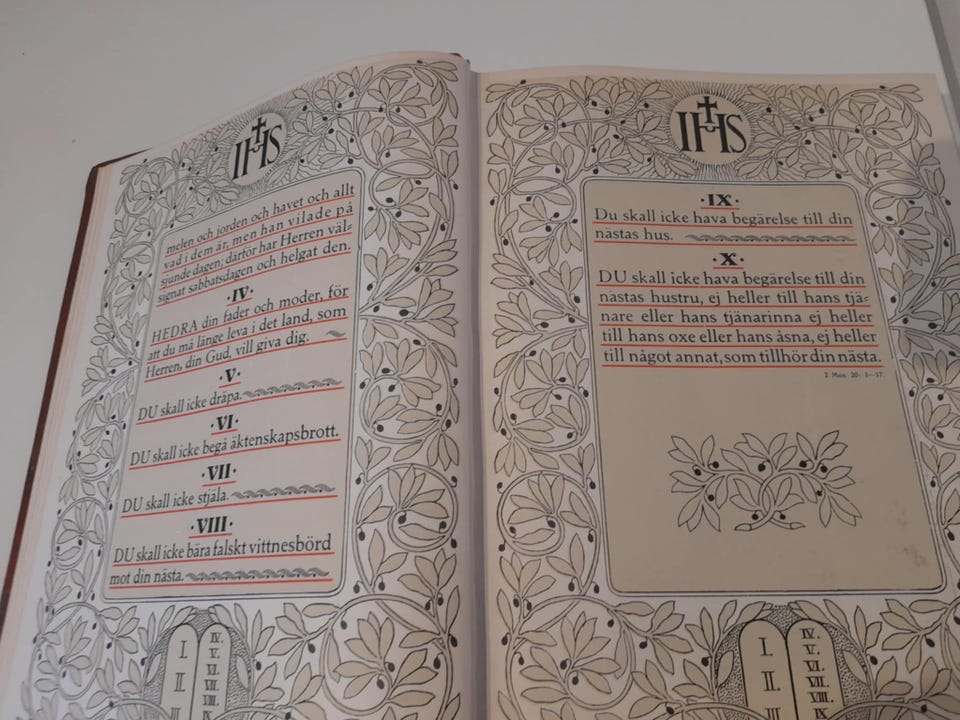 IHS
melen och jorden och havet och allt
vad i dem är, men han vilade på
sjunde dagen; därför har Herren väl=
signat sabbatsdagen och helgat den.
·IV·
HEDRA din fader och moder, för
att du må länge leva i det land, som
Herren, din Gud, vill giva dig.
·V·
DU skall icke dräpa.
·VI·
DU skall icke begå äktenskapsbrott.
·VII·
DU skall icke stjäla.
·VIII·
DU skall icke bära falskt vittnesbörd
mot din nästa.
I.
II.
III
IV.
V.
VI.
VII.
VIII.
IX
IHS
·IX·
Du skall icke hava begärelse till din
nästas hus.
·X·
DU skall icke hava begärelse till din
nästas hustru, ej heller till hans tjä=
nare eller hans tjänarinna ej heller
till hans oxe eller hans åsna, ej heller
till något annat, som tillhör din nästa.
2 Mos. 20: 1—17.
I.
II.
III
IV.
V.
VI.
VII.
VIII.
IX